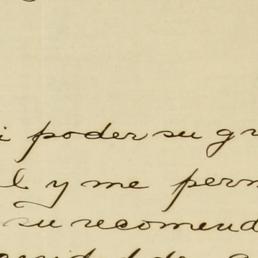 i poder su gr
l y me perm
su recomend